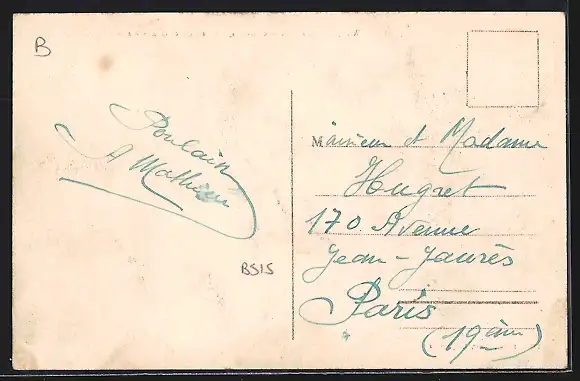 B
Poulain
A Mathieu
BS15
Monsieur et Madame
Hugret
170 Avenue
Jean-Jaurès
Paris
(19ème)